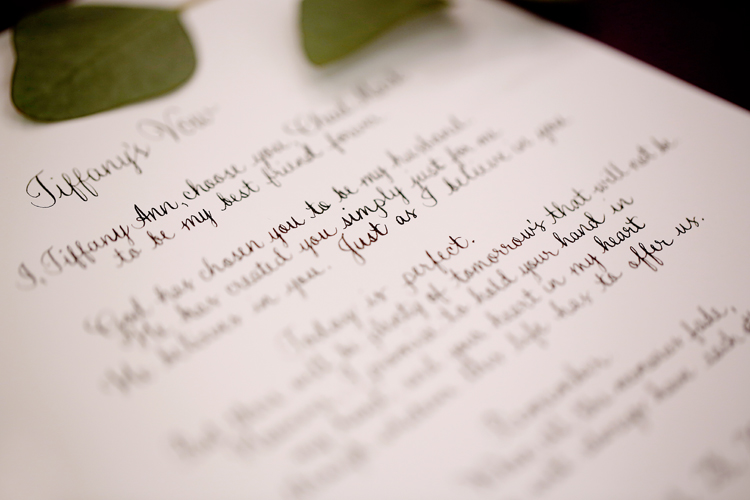 Tiffany's Vow
I, Tiffany Ann, choose you, Chad
to be my best friend forever
God has chosen you to be my husband
He has created you simply just for me
He believes in you. Just as I believe in you
Today is perfect.
But there will be plenty of tomorrow's that will not be
However, I promise to hold your hand in
my hand and your heart in my heart
this life has to offer us.
Remember
When all the memories fade,
will always have each